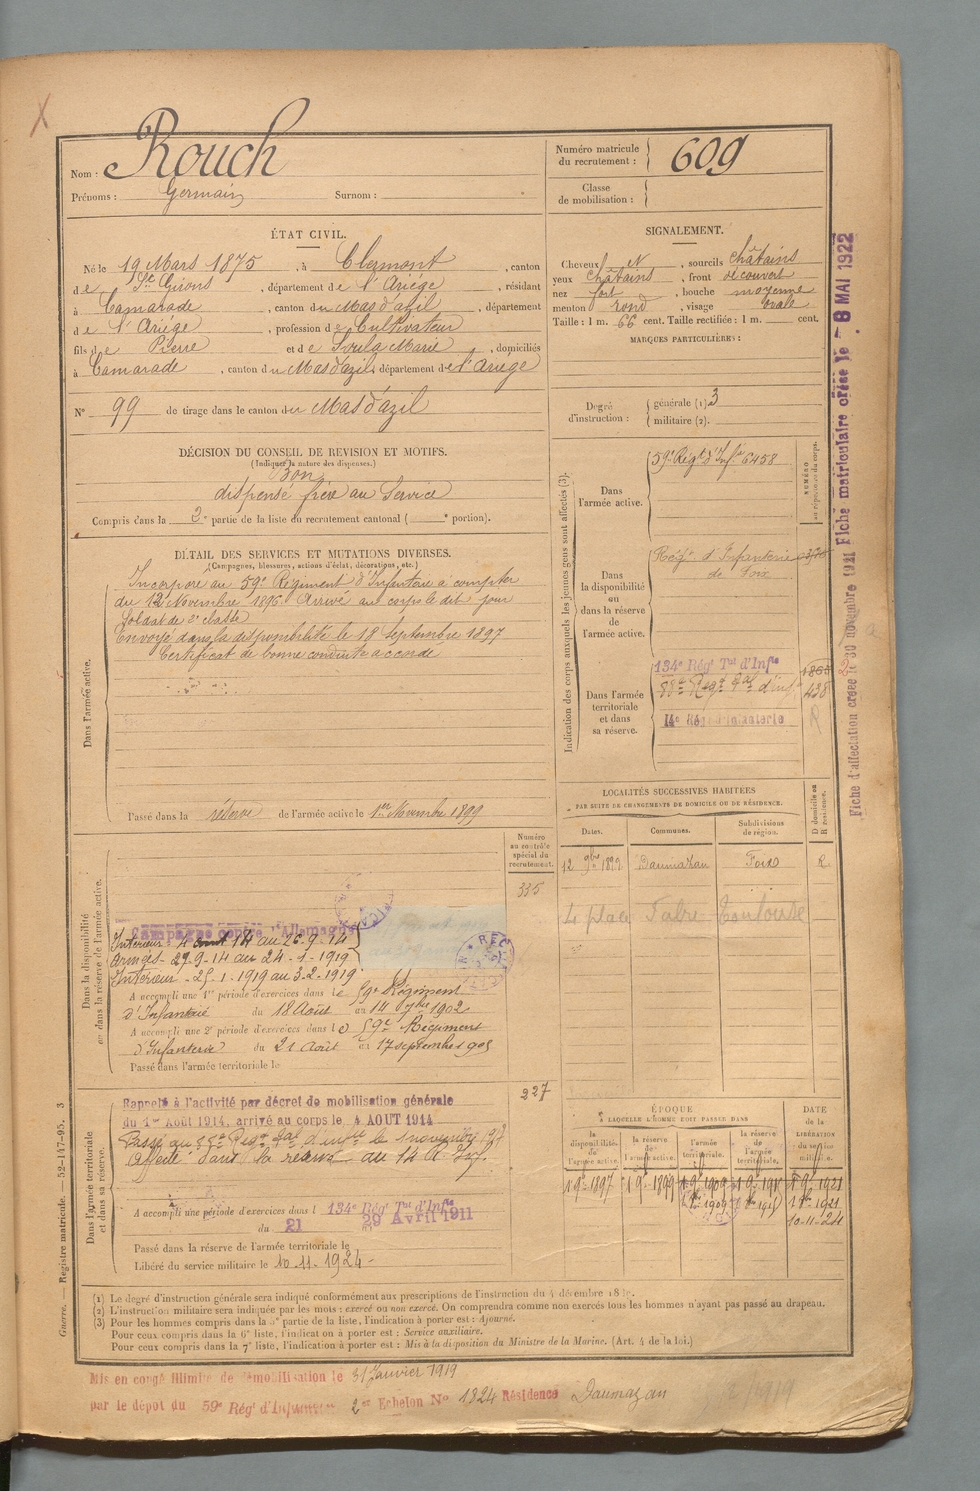 Rouch
Nom :
Prénoms : Germain Surnom :
Numéro matricule du recrutement : 609
Classe de mobilisation :
ÉTAT CIVIL.
Né le 19 Mars 1875, à Clermont, canton
de St Girons, département de l'Ariège, résidant
à Camarade, canton du Mas d'azil, département
de l'Ariège, profession de Cultivateur
fils de Pierre et de Soula Marie, domiciliés
à Camarade, canton du Mas d'azil, département de l'Ariège
N° 99 de tirage dans le canton du Mas d'azil
SIGNALEMENT.
Cheveux N, sourcils châtains
yeux châtains, front découvert
nez fort, bouche moyenne
menton rond, visage ovale
Taille : 1 m. 66 cent. Taille rectifiée : 1 m. cent.
MARQUES PARTICULIÈRES :
Degré d'instruction : générale (1) 3
militaire (2).
DÉCISION DU CONSEIL DE REVISION ET MOTIFS.
(Indiquer la nature des dispenses.)
Bon
dispensé frère au Service
Compris dans la 2e partie de la liste du recrutement cantonal ( e portion).
DÉTAIL DES SERVICES ET MUTATIONS DIVERSES.
(Campagnes, blessures, actions d'éclat, décorations, etc.)
Dans l'armée active.
Incorporé au 59e Régiment d'Infanterie à compter
du 12 Novembre 1896. Arrivé au corps le dit jour
Soldat de 2e classe
Envoyé dans la disponibilité le 18 Septembre 1897
Certificat de bonne conduite accordé
Passé dans la réserve de l'armée active le 1er Novembre 1899
Indication des corps auxquels les jeunes gens sont affectés (3).
NUMÉRO au répertoire du corps.
Dans l'armée active.
59e Régt d'Infie 6458
Dans la disponibilité ou dans la réserve de l'armée active.
Regt d'Infanterie
de Foix
Dans l'armée territoriale et dans sa réserve.
134e Régt Tal d'Infie
88e Regt Tal d'inf. 438
14e Rég d'Infanterie
R
Fiche matriculaire créée le 8 MAI 1922
Fiche d'affectation créée le 30 novembre 1921
LOCALITÉS SUCCESSIVES HABITÉES
PAR SUITE DE CHANGEMENTS DE DOMICILE OU DE RÉSIDENCE.
Dates. Communes. Subdivisions de région. D domicile ou R résidence.
12 9bre 1899 Daumazan Foix R
4 place Fabre Toulouse
Numéro au contrôle spécial du recrutement.
335
Dans la disponibilité ou dans la réserve de l'armée active.
Campagne contre l'Allemagne
Intérieur - 4 aout 14 au 26.9.14
Armées - 27.9.14 au 24.1.1919
Intérieur - 25.1.1919 au 3.2.1919
A accompli une 1re période d'exercices dans le 59e Régiment
d'Infanterie du 18 Août au 14 7bre 1902
A accompli une 2e période d'exercices dans le 59e Régiment
d'Infanterie du 21 Août au 17 septembre 1905
Passé dans l'armée territoriale le
227
Dans l'armée territoriale et dans sa réserve.
Rappelé à l'activité par décret de mobilisation générale
du 1er Août 1914, arrivé au corps le 4 AOUT 1914
Affecté dans la réserve au 14 R. Inf.
A accompli une période d'exercices dans l 134e Rég Tal d'Infie
du 21 29 Avril 1911
Passé dans la réserve de l'armée territoriale le
Libéré du service militaire le 10.11.1924
ÉPOQUE
À LAQUELLE L'HOMME DOIT PASSER DANS
la disponibilité de l'armée active. la réserve de l'armée active. l'armée territoriale. la réserve de l'armée territoriale.
DATE DE LA LIBÉRATION du service militaire.
1 9bre 1897 1 9bre 1899 1 9bre 1909
10-11-24
Guerre. — Registre matricule. — 52-147-95. 3
(1) Le degré d'instruction générale sera indiqué conformément aux prescriptions de l'instruction du 4 décembre
(2) L'instruction militaire sera indiquée par les mots : exercé ou non exercé. On comprendra comme non exercés tous les hommes n'ayant pas passé au drapeau.
(3) Pour les hommes compris dans la 5e partie de la liste, l'indication à porter est : Ajourné.
Pour ceux compris dans la 6e liste, l'indication à porter est : Service auxiliaire.
Pour ceux compris dans la 7e liste, l'indication à porter est : Mis à la disposition du Ministre de la Marine. (Art. 4 de la loi.)
Mis en congé illimité de démobilisation le 31 Janvier 1919
par le dépôt du 59e Rég d'Infanterie 2me Echelon N° 1824 Résidence Daumazan